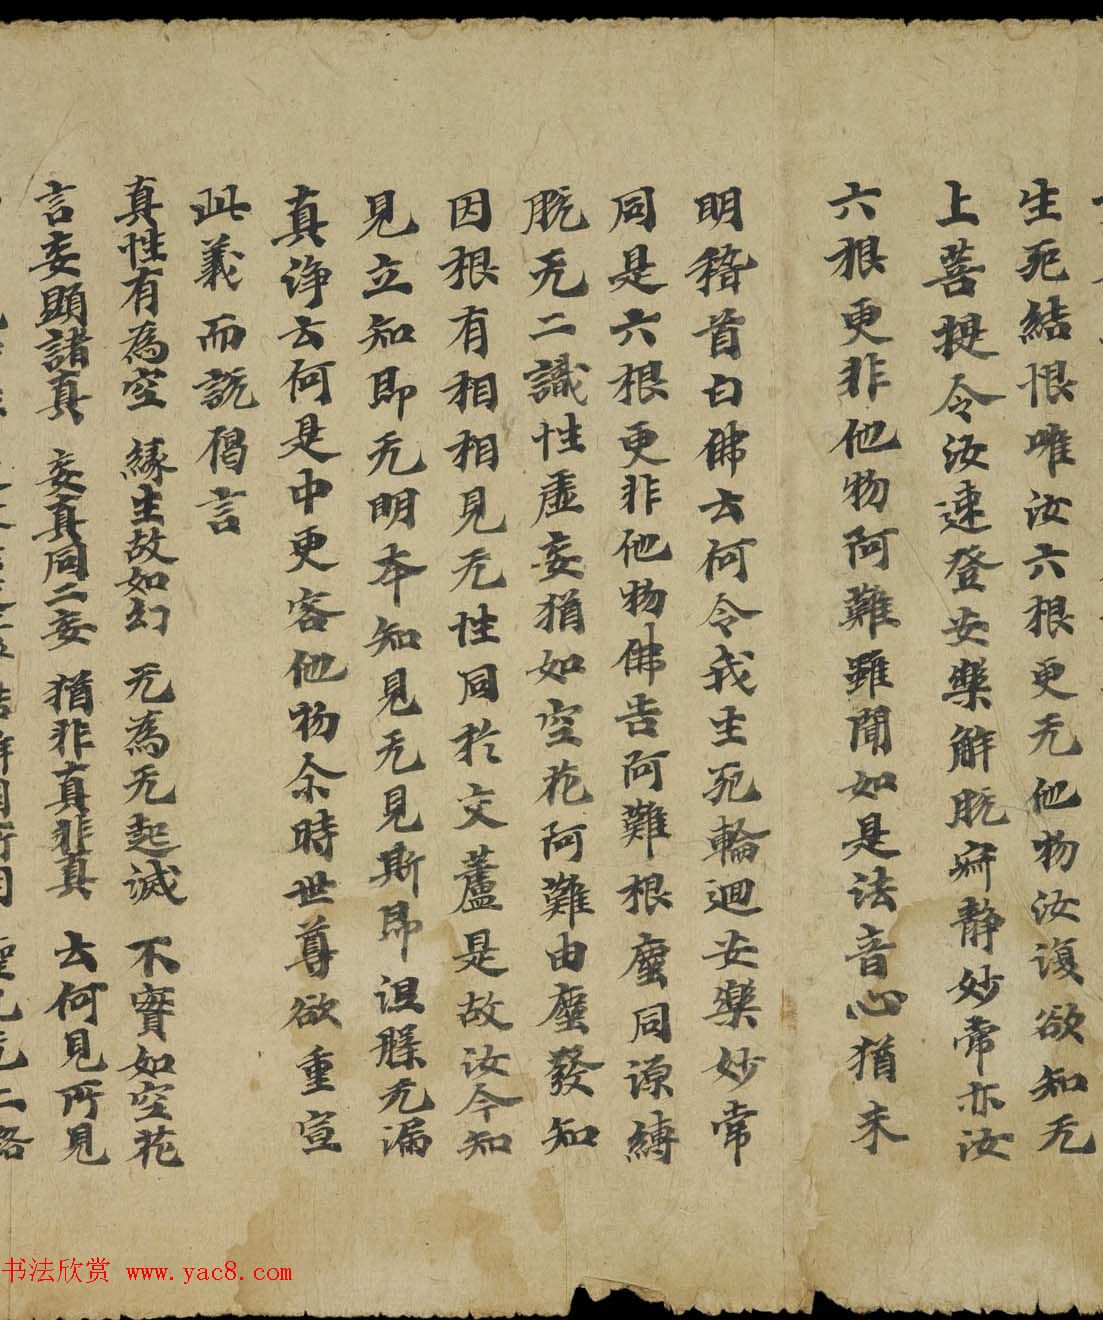 生死結恨唯汝六根更无他物汝復欲知无
上菩提令汝速登安樂解脫寂静妙常亦汝
六根更非他物阿難雖聞如是法音心猶未
明稽首白佛云何令我生死輪迴安樂妙常
同是六根更非他物佛告阿難根塵同源縛
脫无二識性虛妄猶如空花阿難由塵發知
因根有相相見无性同於交蘆是故汝今知
見立知即无明本知見无見斯即涅槃无漏
真淨云何是中更容他物尒時世尊欲重宣
此義而說偈言
真性有為空 緣生故如幻 无為无起滅 不實如空花
言妄顯諸真 妄真同二妄 猶非真非真 云何見所見
书法欣赏 www.yac8.com